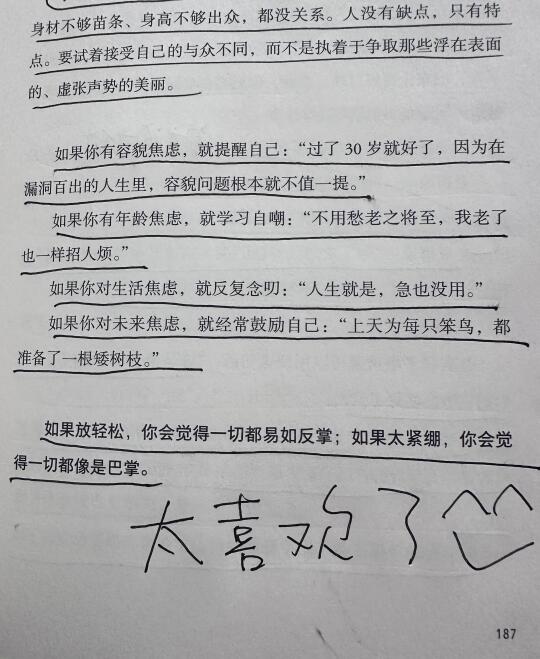 身材不够苗条、身高不够出众，都没关系。人没有缺点，只有特
点。要试着接受自己的与众不同，而不是执着于争取那些浮在表面
的、虚张声势的美丽。
如果你有容貌焦虑，就提醒自己：“过了 30 岁就好了，因为在
漏洞百出的人生里，容貌问题根本就不值一提。”
如果你有年龄焦虑，就学习自嘲：“不用愁老之将至，我老了
也一样招人烦。”
如果你对生活焦虑，就反复念叨：“人生就是，急也没用。”
如果你对未来焦虑，就经常鼓励自己：“上天为每只笨鸟，都
准备了一根矮树枝。”
如果放轻松，你会觉得一切都易如反掌；如果太紧绷，你会觉
得一切都像是巴掌。
太喜欢了
187